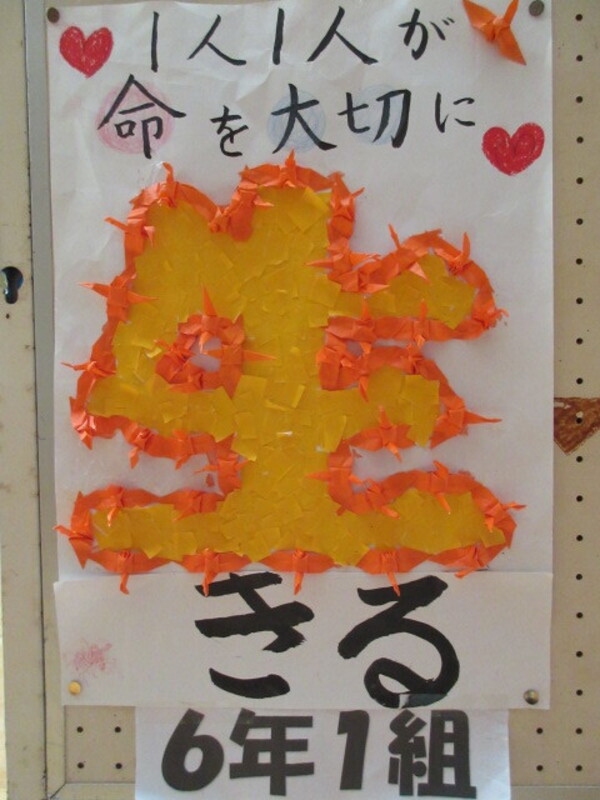 1人1人が
命を大切に
生
きる
6年1組